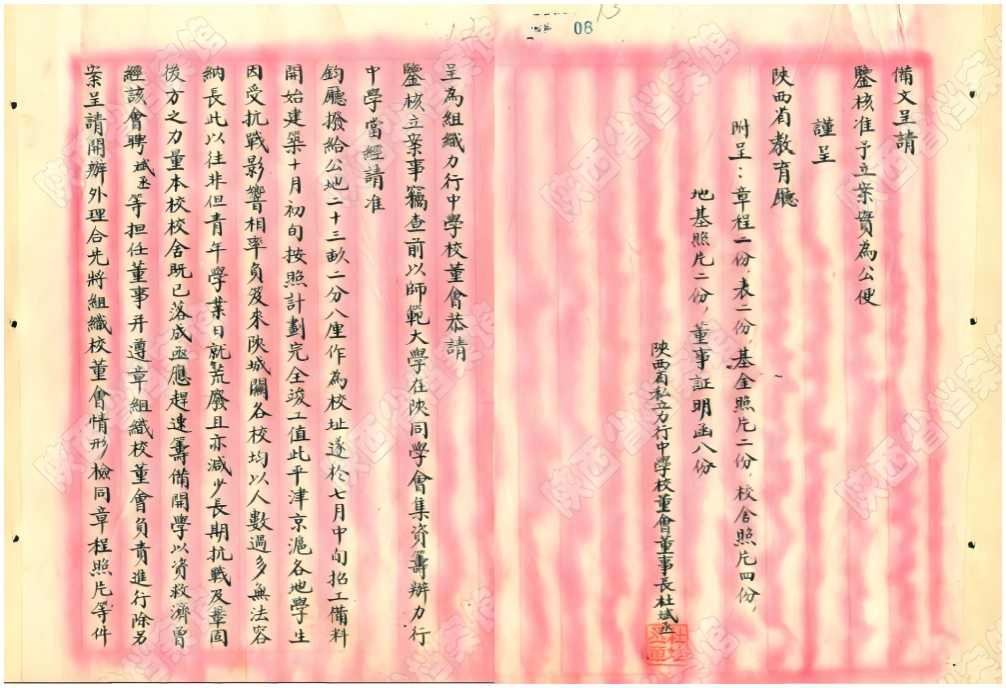 呈為組織力行中學校董會恭請
鑒核立案事竊查前以師範大學在陝同學會集資籌辦力行
中學當經請准
鈞廳撥給公地二十三畝二分八厘作為校址遂於七月中旬招工備料
開始建築十月初旬按照計劃完全竣工值此平津京滬各地學生
因受抗戰影響相率負笈來陝城關各校均以人數過多無法容
納長此以往非但青年學業日就荒廢且亦減少長期抗戰及鞏固
後方之力量本校校舍既已落成亟應趕速籌備開學以資救濟曾
經該會聘斌丞等担任董事并遵章組織校董會負責進行除另
案呈請開辦外理合先將組織校董會情形檢同章程照片等件
備文呈請
鑒核准予立案實為公便
謹呈
陝西省教育廳
附呈：章程二份，表二份，基金照片二份，校舍照片四份，
地基照片二份，董事証明函八份
陝西省私立力行中學校董會董事長杜斌丞
06
12
13
陕西省档案馆